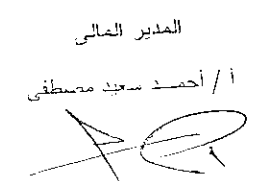 المدير المالى
أ / أحمد سعيد مصطفى